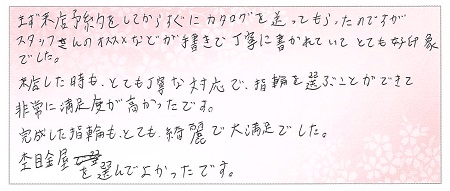 まず来店予約をしてからすぐにカタログを送ってもらったのですが
スタッフさんのオススメなどが手書きで丁寧に書かれていてとても好印象
でした。
来店した時も、とても丁寧な対応で、指輪を選ぶことができて
非常に満足度が高かったです。
完成した指輪も、とても綺麗で大満足でした。
杢目金屋を選んでよかったです。